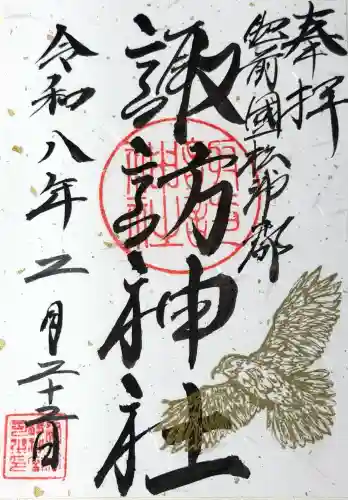 奉拝
肥前國松浦郡
諏訪神社
令和八年二月二十五日